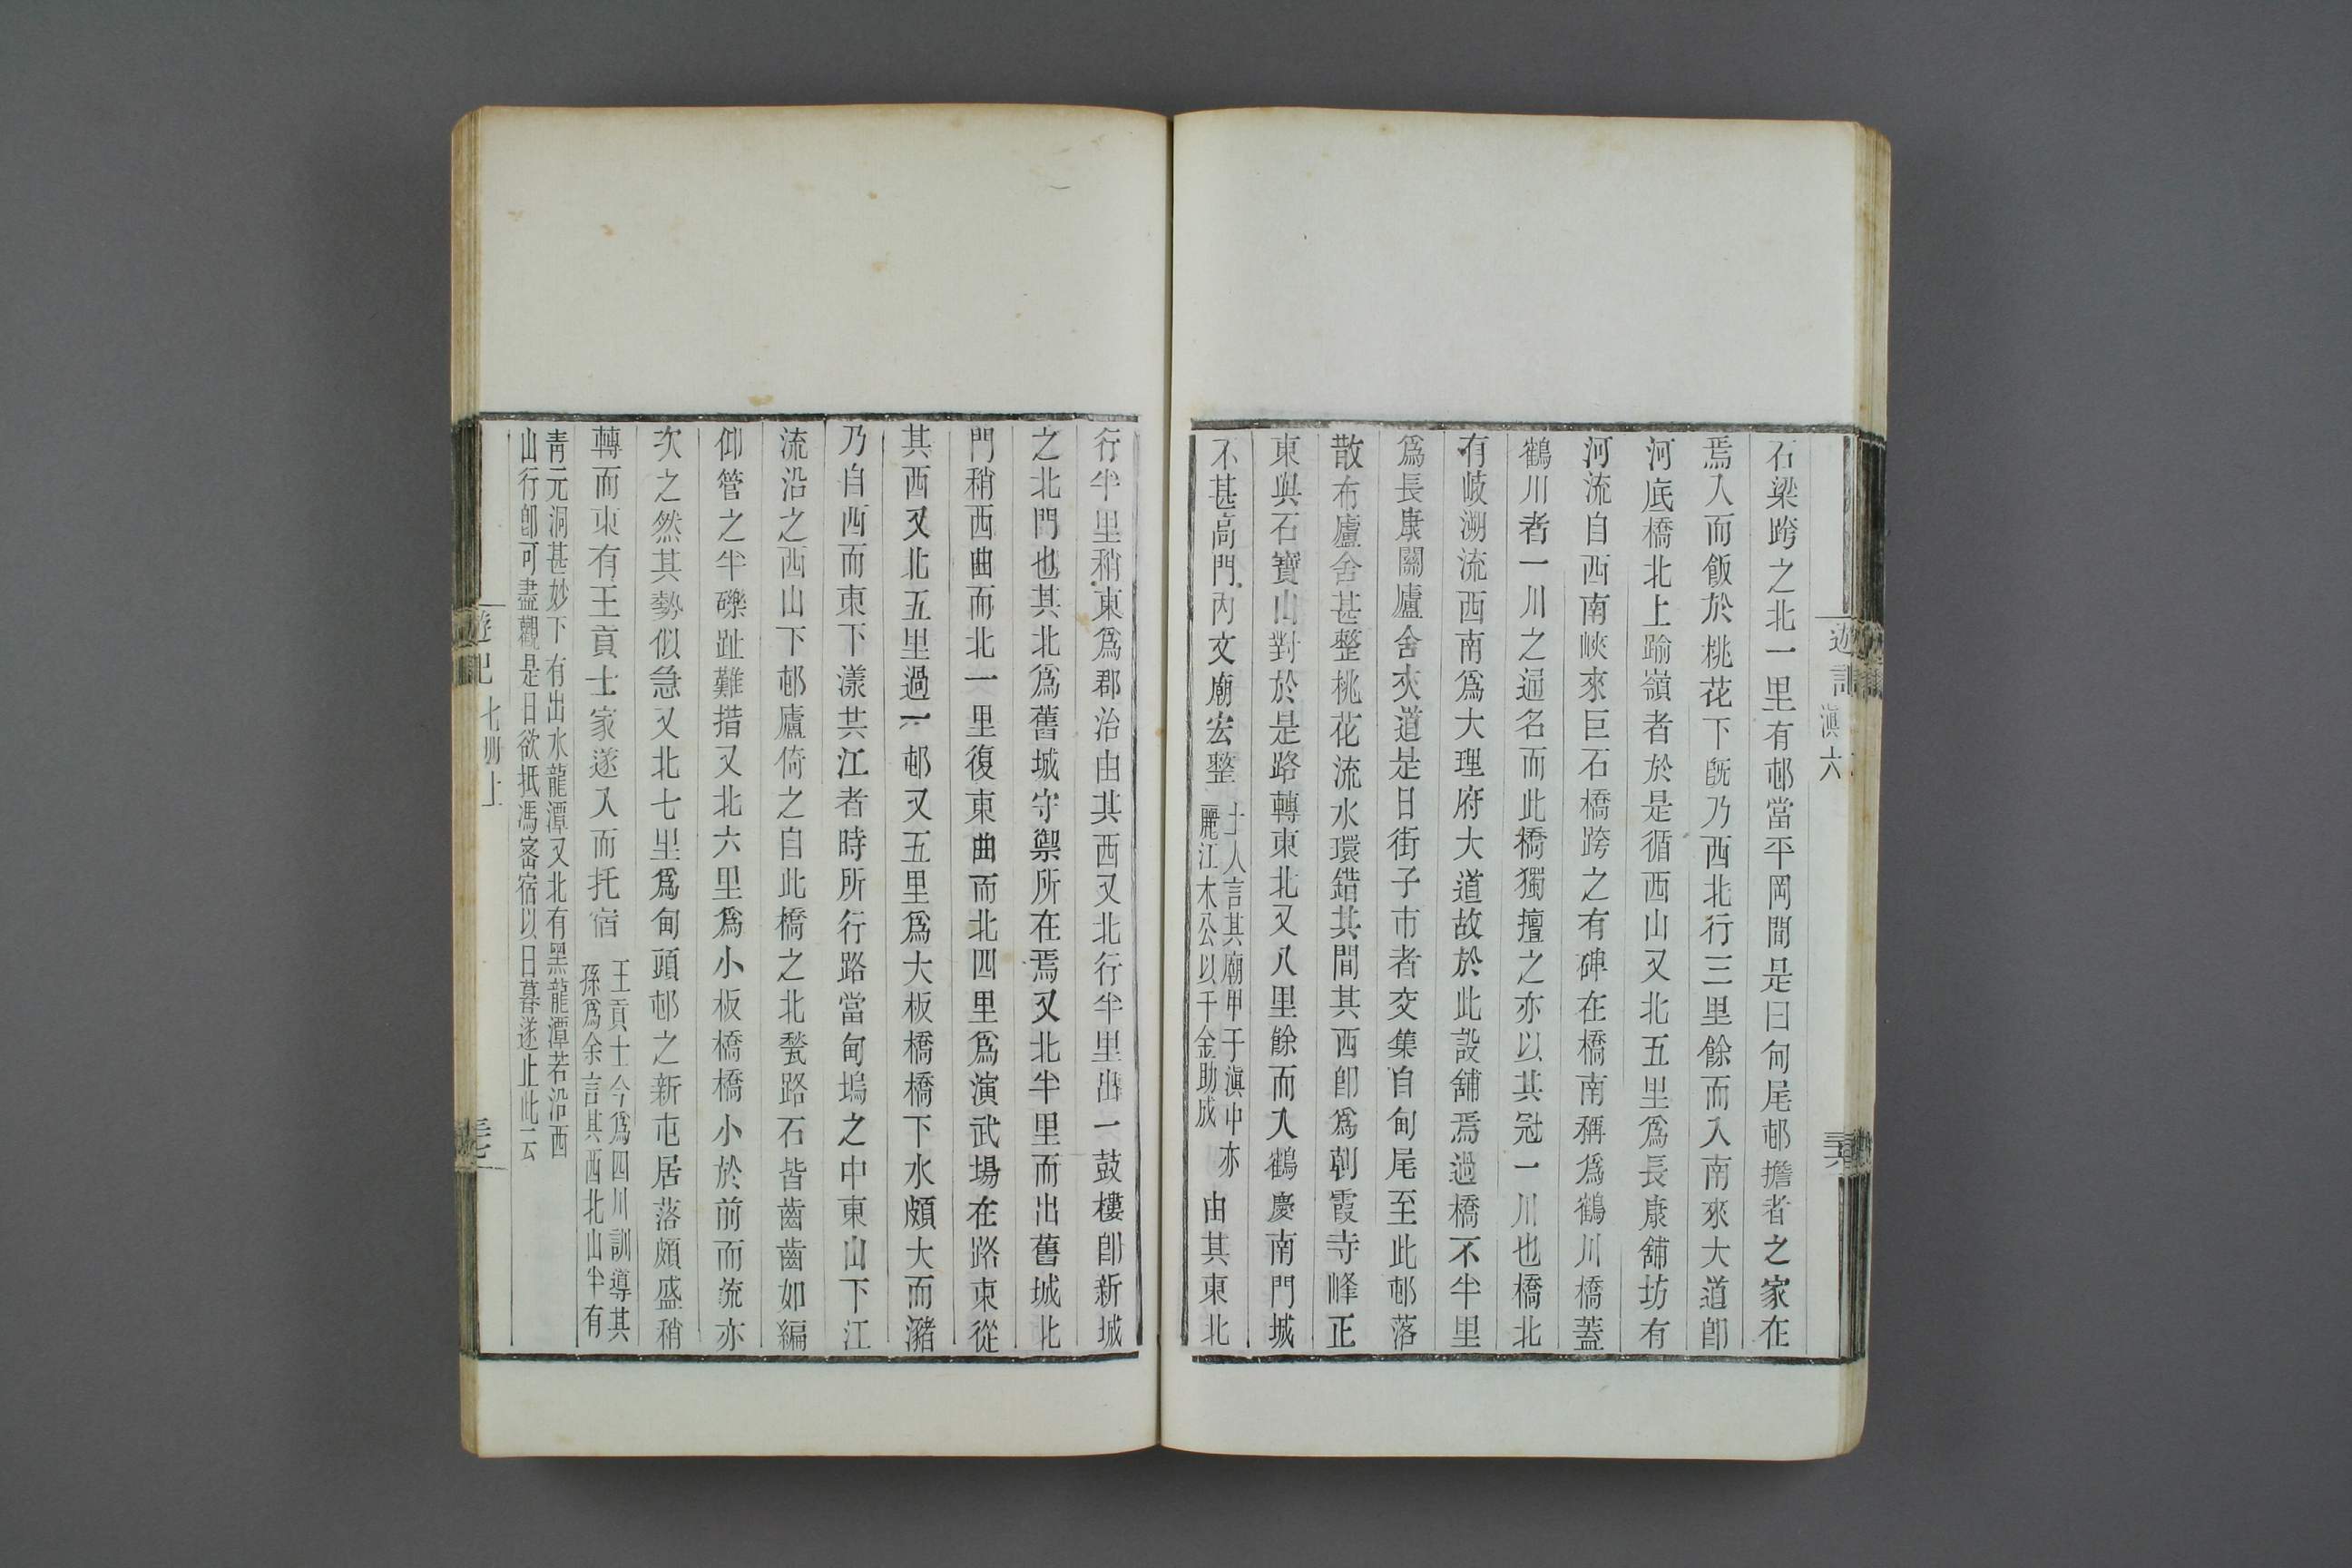 遊記
滇六
石梁跨之北一里有邨當平岡間是曰甸尾邨擔者之家在
焉入而飯於桃花下旣乃西北行三里餘而入南來大道卽
河底橋北上踰嶺者於是循西山又北五里爲長康舖坊有
河流自西南峽來巨石橋跨之有碑在橋南稱爲鶴川橋蓋
鶴川者一川之通名而此橋獨擅之亦以其冠一川也橋北
有岐溯流西南爲大理府大道故於此設舖焉過橋不半里
爲長康關廬舍夾道是日街子市者交集自甸尾至此邨落
散布廬舍甚整桃花流水環錯其間其西卽爲朝霞寺峰正
東與石寶山對於是路轉東北又八里餘而入鶴慶南門城
不甚高門內文廟宏整
土人言其廟甲于滇中亦
麗江木公以千金助成
由其東北
行半里稍東爲郡治由其西又北行半里出一鼓樓卽新城
之北門也其北爲舊城守禦所在焉又北半里而出舊城北
門稍西曲而北一里復東曲而北四里爲演武場在路東從
其西又北五里過一邨又五里爲大板橋橋下水頗大而瀦
乃自西而東下漾共江者時所行路當甸塢之中東山下江
流沿之西山下邨廬倚之自此橋之北甃路石皆齒齒如編
仰管之半礫趾難措又北六里爲小板橋橋小於前而流亦
次之然其勢似急又北七里爲甸頭邨之新屯居落頗盛稍
轉而東有王貢士家遂入而托宿
王貢士今爲四川訓導其
孫爲余言其西北山半有
青元洞甚妙下有出水龍潭又北有黑龍潭若沿西
山行卽可盡觀是日欲抵馮密宿以日暮遂止此云
遊記
七册上